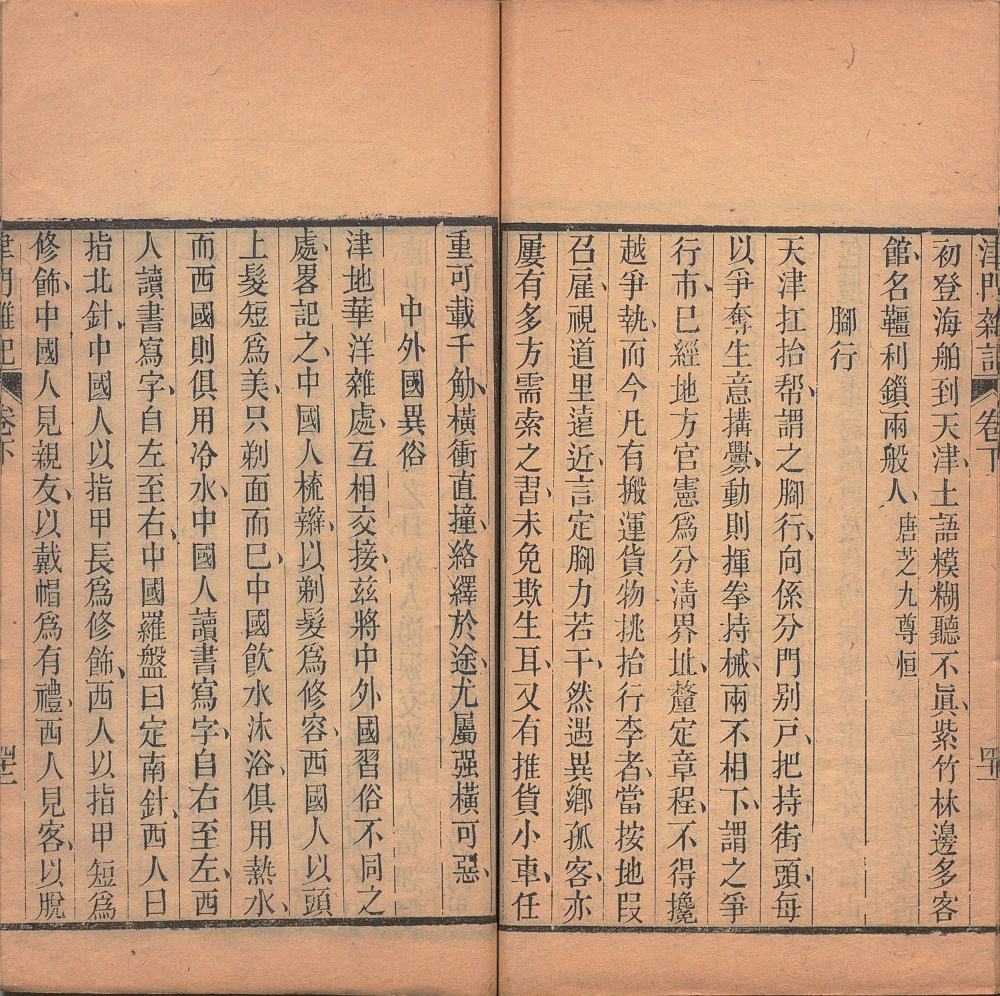 津門雜記 卷下 四十一
初登海舶到天津、土語糢糊聽不眞、紫竹林邊多客
館、名韁利鎖兩般人、唐芝九尊恒
腳行
天津扛抬帮、謂之腳行、向係分門别戸、把持街頭、每
以爭奪生意搆釁、動則揮拳持械、兩不相下、謂之爭
行市、已經地方官憲爲分淸界址、釐定章程、不得攙
越爭執、而今凡有搬運貨物挑抬行李者、當按地叚
召雇、視道里遠近、言定腳力若干、然遇異鄉孤客、亦
屢有多方需索之習、未免欺生耳、又有推貨小車、任
重可載千觔、橫衝直撞、絡繹於途、尤屬强橫可惡、
中外國異俗
津地華洋雜處、互相交接、茲將中外國習俗不同之
處、畧記之、中國人梳辮、以剃髮爲修容、西國人以頭
上髮短爲美、只剃面而已、中國飮水沐浴、俱用熱水、
而西國則俱用冷水、中國人讀書寫字、自右至左、西
人讀書寫字、自左至右、中國羅盤曰定南針、西人曰
指北針、中國人以指甲長爲修飾、西人以指甲短爲
修飾、中國人見親友、以戴帽爲有禮、西人見客、以脫
津門雜記 卷下 四十二